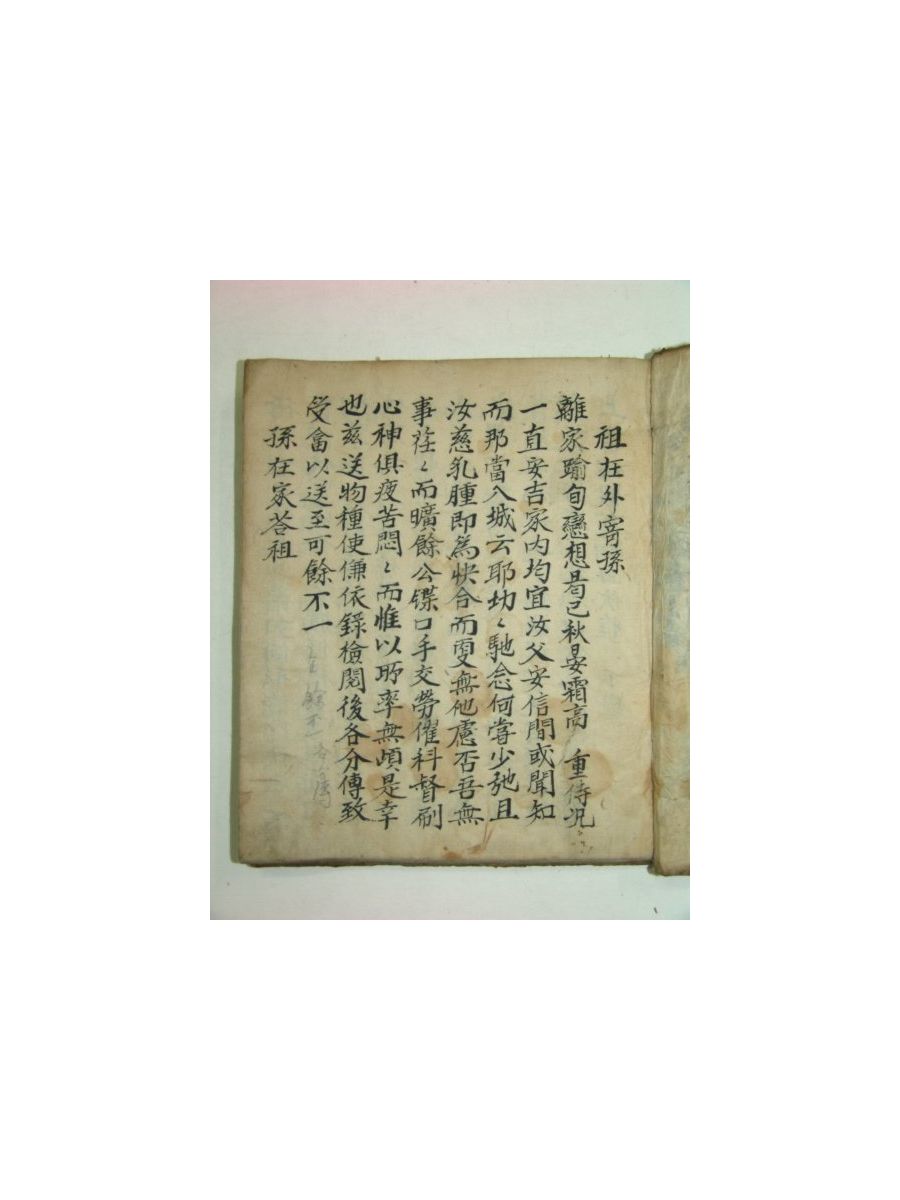 祖在外寄孫
離家踰旬戀想曷已秋晏霜高 重侍况
一直安吉家內均宜汝父安信間或聞知
而那當入城云耶劫〻馳念何嘗少弛且
汝慈乳腫即爲快合而更無他慮否吾無
事荏〻而曠餘公鏁口手交勞催科督刷
心神俱疲苦悶〻而惟以所率無頉是幸
也玆送物種使傔依錄檢閱後各分傳致
受畣以送至可餘不一
孫在家荅祖